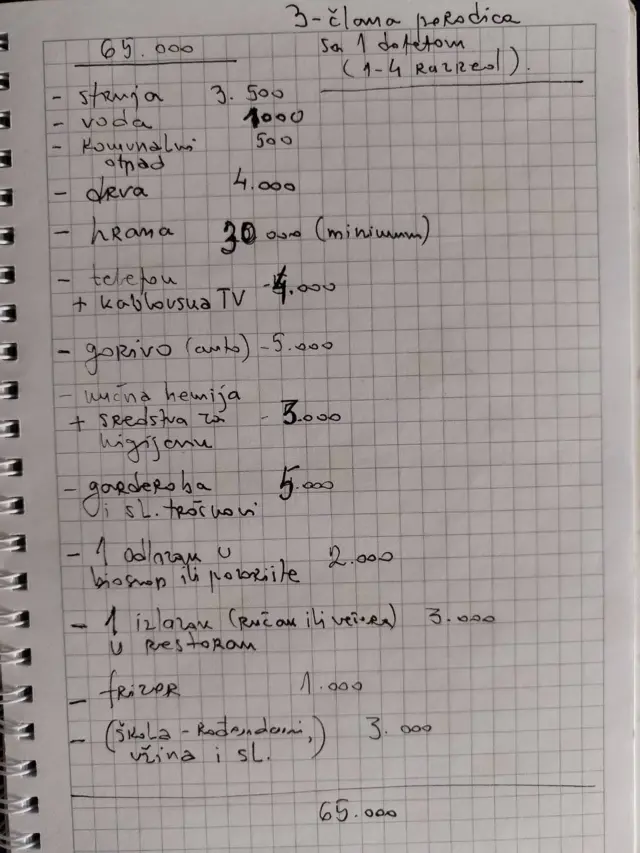 3-člana porodica
65.000 sa 1 detetom
(1-4 razred).
- struja 3.500
- voda 1000
- komunalni 500
otpad
- drva 4.000
- hrana 30 000 (minimum)
- telefon
+ kablovska TV - 4.000
- gorivo (auto) - 5.000
- kućna hemija
+ sredstva za - 3.000
higijenu
- garderoba 5.000
i sl. troškovi
- 1 odlazak u 2.000
bioskop ili pozorište
- 1 izlazak (ručak ili večera) 3.000
u restoran
- frizer 1.000
- (škola - rođendani, 3.000
užina i sl.)
65.000